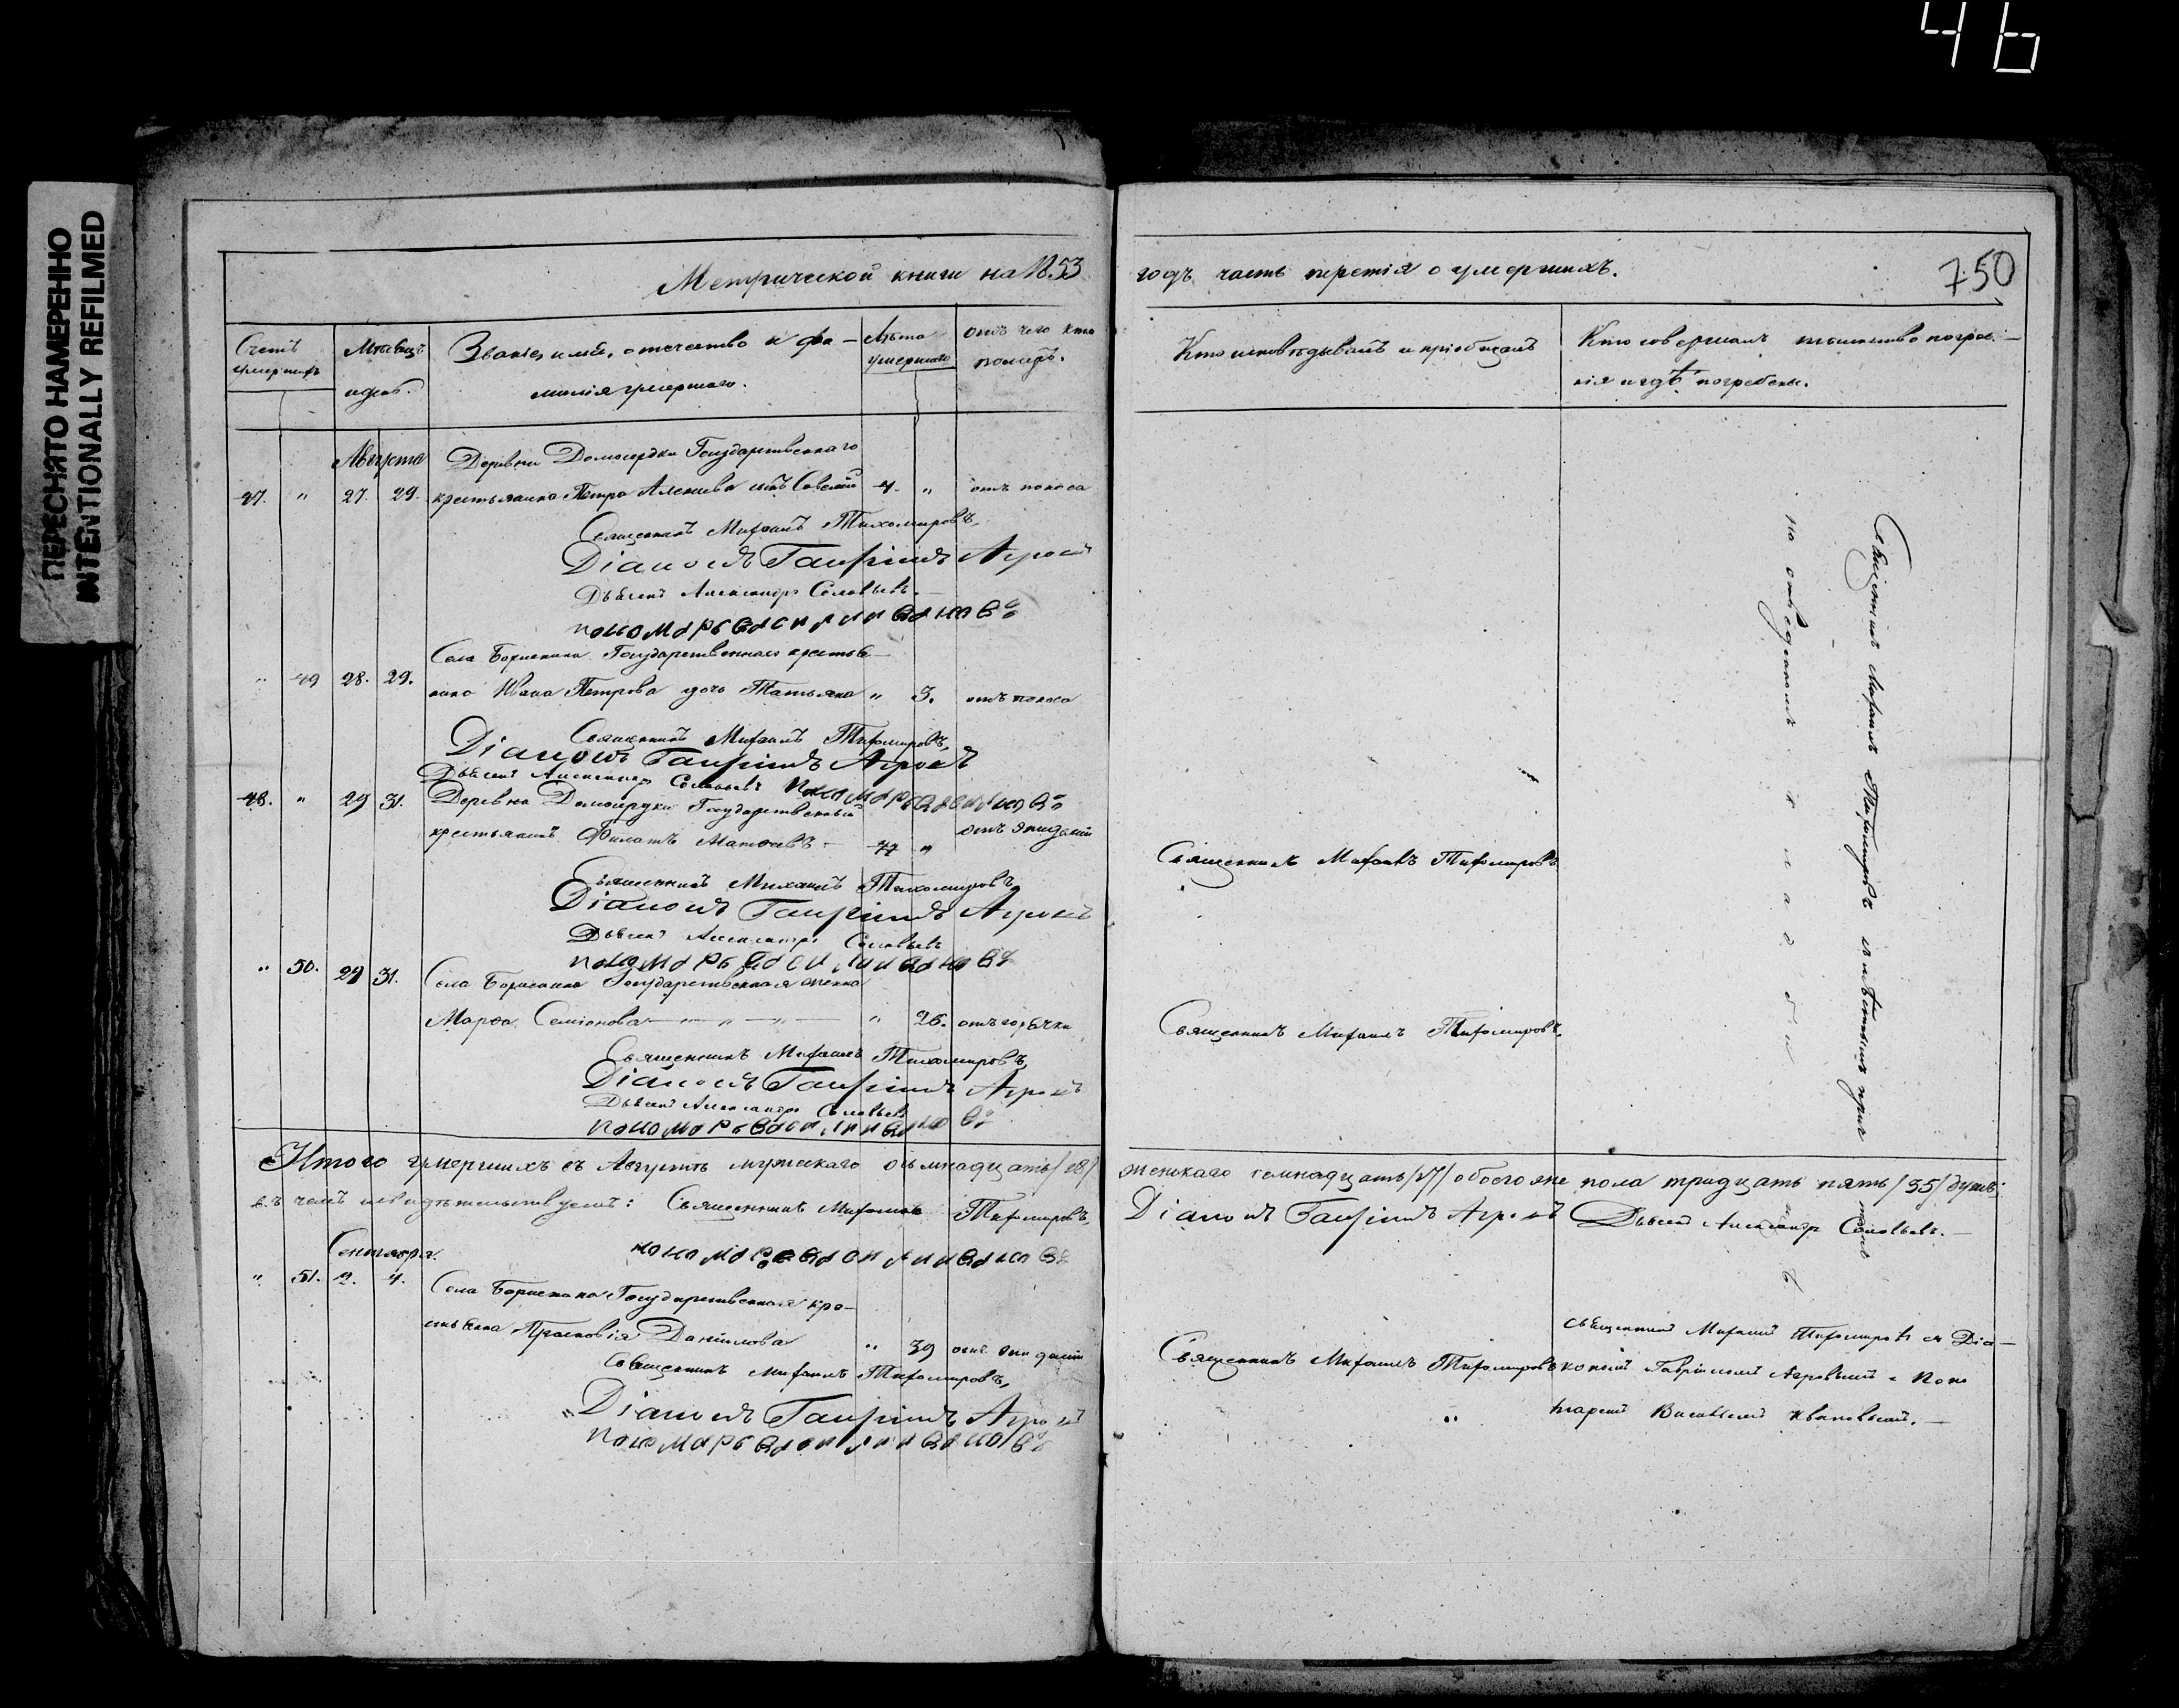 46
ПЕРЕСНЯТО НАМЕРЕННО
INTENTIONALLY REFILMED
Метрической книги на 1853
годъ часть третія о умершихъ.
750
Счетъ умершихъ
Мѣсяцъ и день.
Званіе, имя, отечество и фа-
милія умершаго.
Лѣта умершаго
Отъ чего кто
померъ.
Кто исповѣдывалъ и пріобщалъ
Кто совершалъ таинство погребе-
нія и гдѣ погребены.
Августа
Деревни Государственнаго
47. " 27. 29. крестьянина Петра Алексиева сынъ Савелій 4. " отъ поноса
Священникъ Михаилъ Тихомировъ,
Діаконъ Гавріилъ Агровъ
Дьячекъ Александръ Соловьевъ.
пономарь Василий Ивановъ
Села Борискина Государственнаго крестья-
" 49 28. 29. нина Ивана Петрова дочь Татьяна " 3. отъ поноса
Священникъ Михаилъ Тихомировъ,
Діаконъ Гавріилъ Агровъ
Дьячекъ Александръ Соловьевъ пономарь Василий Ивановъ
48. " 29 31. Деревни Государственный
крестьянинъ Филатъ Матвеевъ 77 "
Священникъ Михаилъ Тихомировъ
Священникъ Михаилъ Тихомировъ
Діаконъ Гавріилъ Агровъ
Дьячекъ Александръ Соловьевъ
пономарь Василий Ивановъ
" 50. 29 31. Села Борискина Государственная
Марѳа Семіонова " 26. отъ горячки
Священникъ Михаилъ Тихомировъ.
Священникъ Михаилъ Тихомировъ,
Діаконъ Гавріилъ Агровъ
Дьячекъ Александръ Соловьевъ
пономарь Василий Ивановъ
Священникъ Михаилъ Тихомировъ съ
на отведенномъ кладби
Итого умершихъ въ Августѣ мужескаго осьмнадцать /18/
женскаго семнадцать /17/ обоего же пола тридцать пять /35/ душъ;
въ чемъ и свидѣтельствуемъ: Священникъ Михаилъ Тихомировъ,
Діаконъ Гавріилъ Агровъ Дьячекъ Александръ Соловьевъ.
пономарь Василий Ивановъ
Сентября.
" 51. 2. 4. Села Борискина Государственная кре-
стьянка Прасковія Данилова " 39
Священникъ Михаилъ Тихомировъ
Священникъ Михаилъ Тихомировъ съ Діа-
кономъ Гавріиломъ Агровымъ и Поно
маремъ Василіемъ Ивановымъ.
Священникъ Михаилъ Тихомировъ,
Діаконъ Гавріилъ Агровъ
пономарь Василий Ивановъ